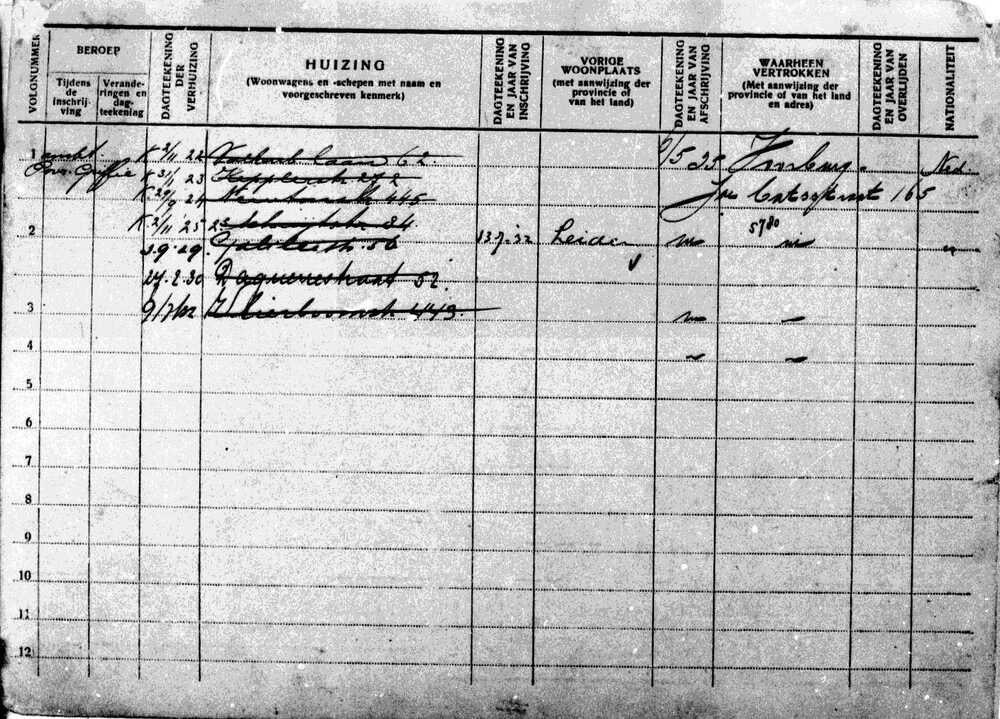 VOLGNUMMER
BEROEP
Tijdens de inschrijving
Veranderingen en dagteekening
DAGTEEKENING DER VERHUIZING
HUIZING
(Woonwagens en -schepen met naam en voorgeschreven kenmerk)
DAGTEEKENING EN JAAR VAN INSCHRIJVING
VORIGE WOONPLAATS
(met aanwijzing der provincie of van het land)
DAGTEEKENING EN JAAR VAN AFSCHRIJVING
WAARHEEN VERTROKKEN
(Met aanwijzing der provincie of van het land en adres)
DAGTEEKENING EN JAAR VAN OVERLIJDEN
NATIONALITEIT
1 K 2/11 22 laan 62. /5 35 Ned.
Griffie K 31/ 23 Keplerstr 272
K 29/9 24 Newtonstr 445 165
K 2/11 25 84 5780
2 29 Galileistr 56 13-7-32 Leiden
27.2.30 Daguerrestraat 52.
3 9/7/32 Vlierboomstr 443.
4
5
6
7
8
9
10
11
12